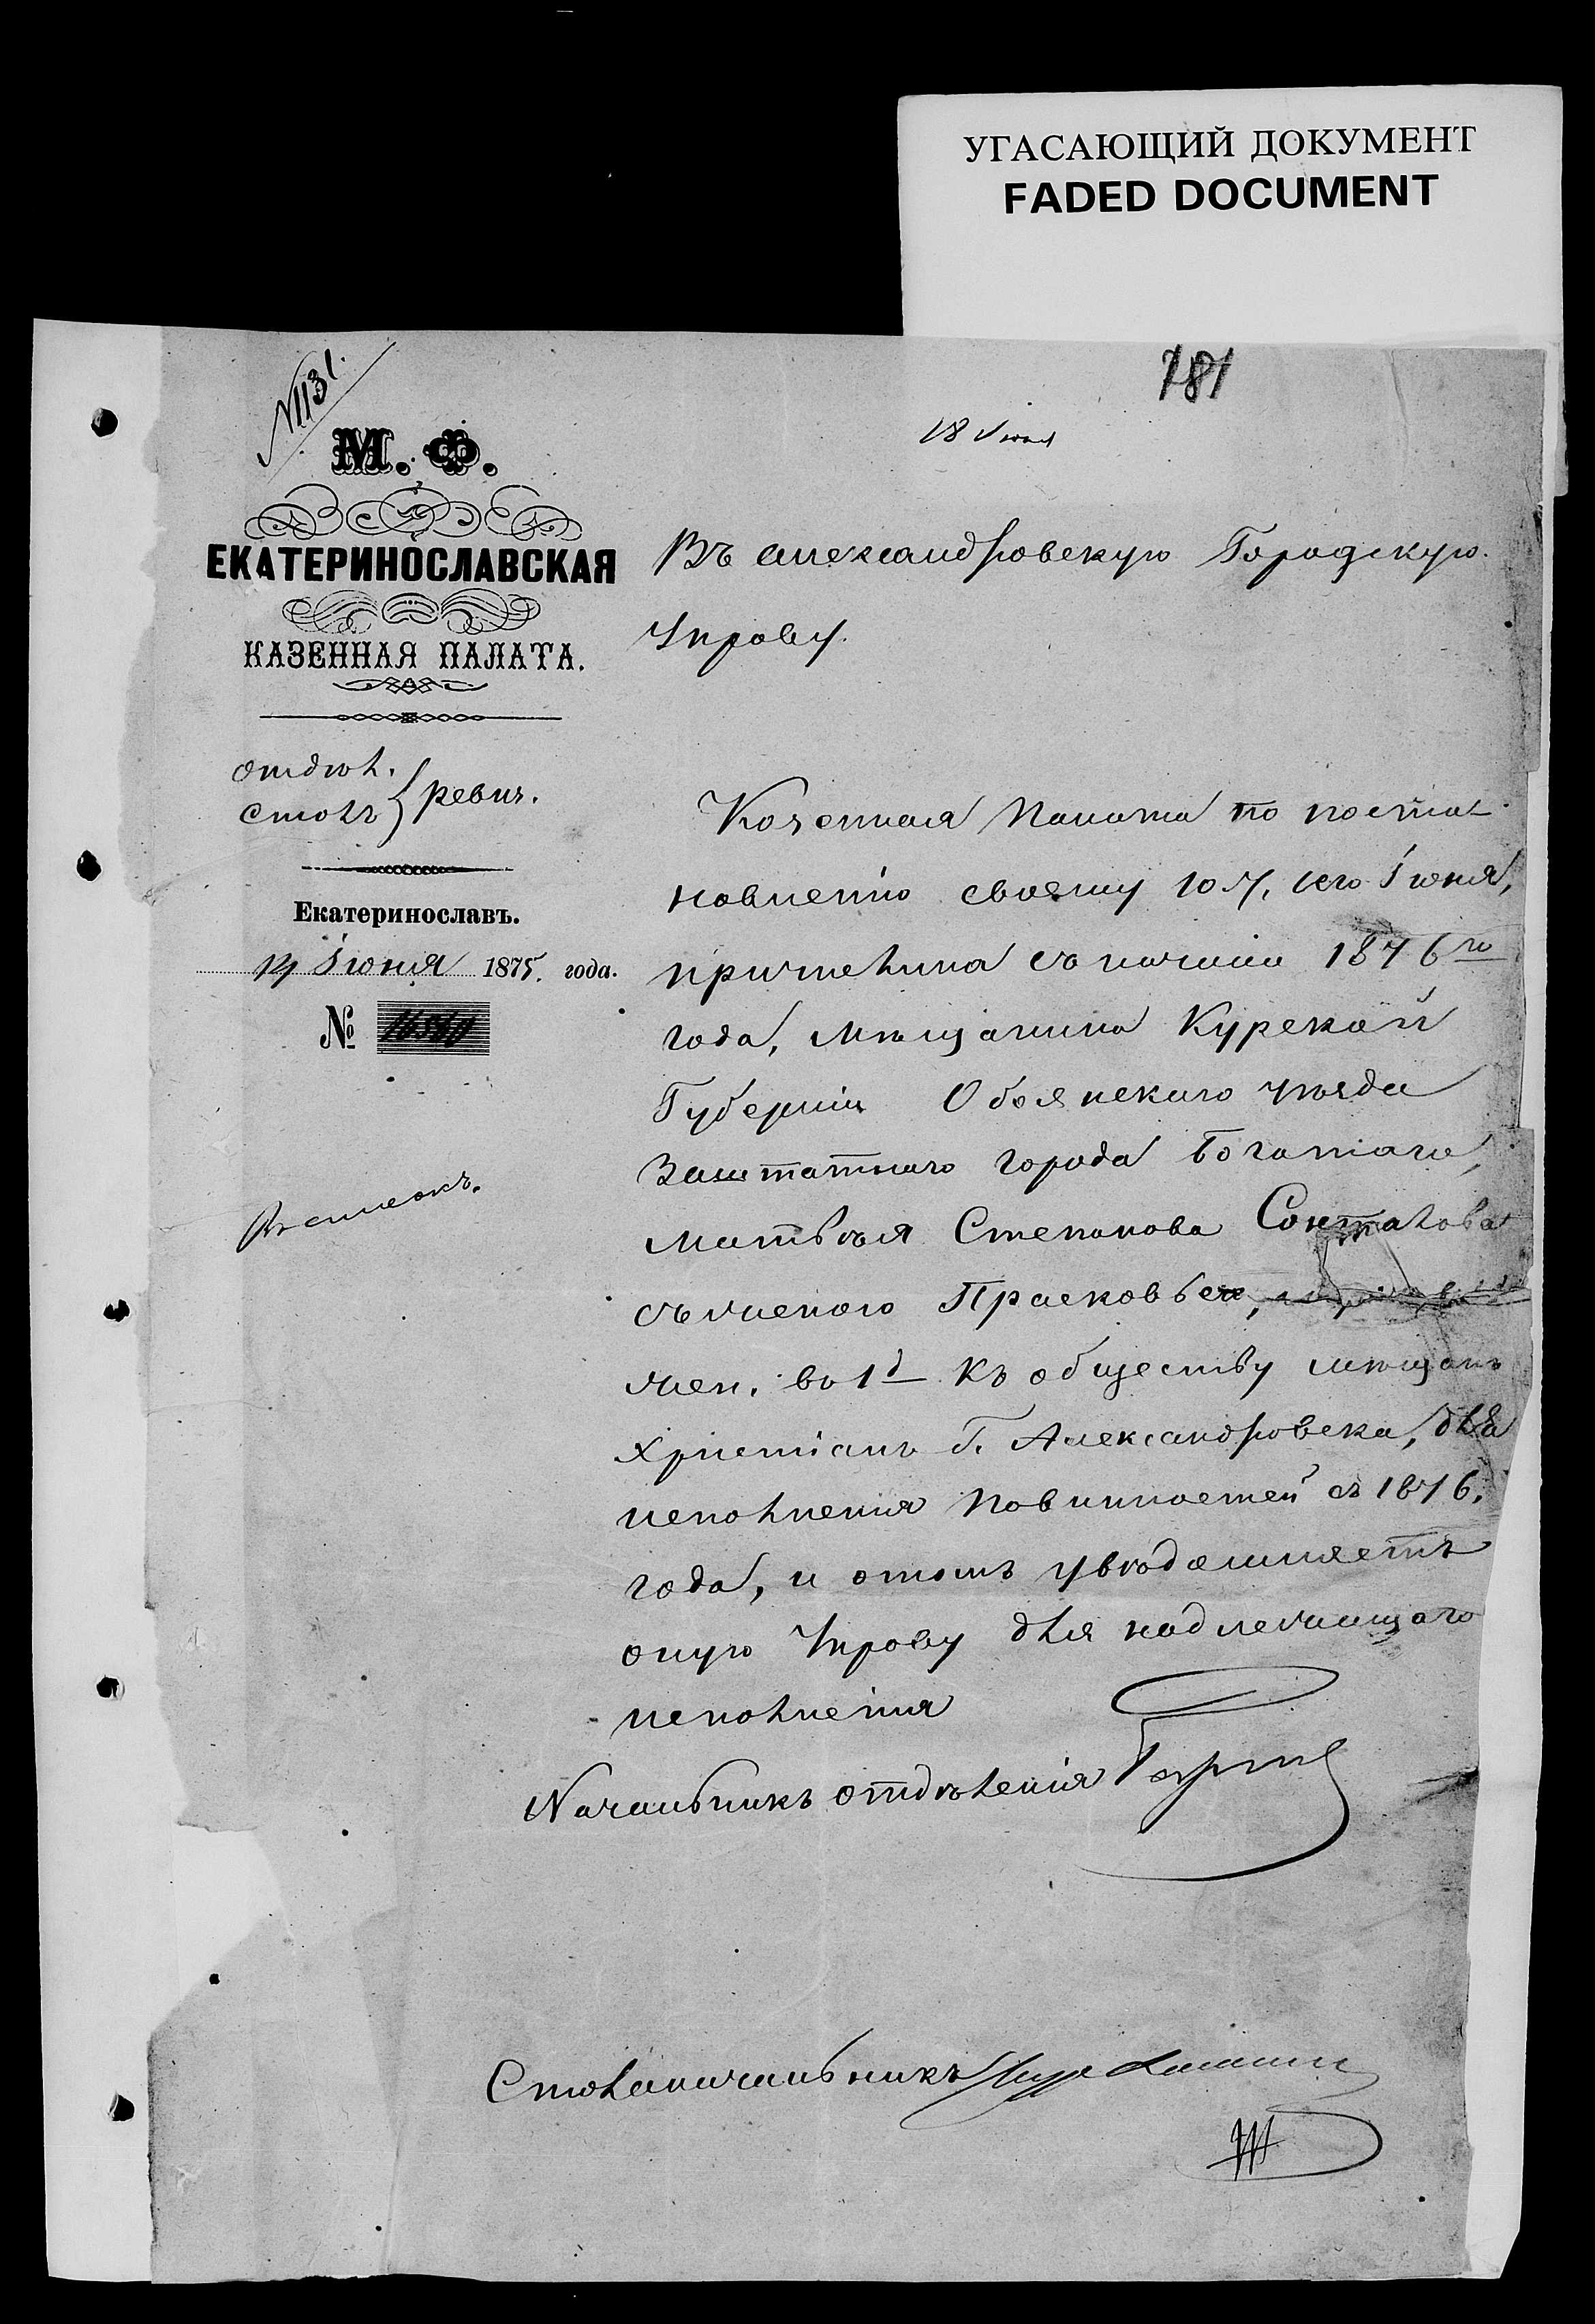 УГАСАЮЩИЙ ДОКУМЕНТ
FADED DOCUMENT
№1131.
781
18 Июня
М. Ф.
ЕКАТЕРИНОСЛАВСКАЯ
КАЗЕННАЯ ПАЛАТА.
Отдѣл.
Столъ } ревиз.
Екатеринославъ.
14 Іюня 1875. года.
№
Въ Александровскую Городскую
Управу.
Казенная Палата по поста-
новленію своему 10 сего Іюня,
причислила съ начала 1876го
года, мѣщанина Курской
Губерніи Обоянскаго уѣзда
Заштатнаго города Богатаго,
Матвѣя Степанова
съ женою Прасковьею,
жен. во 1д къ обществу мѣщанъ
христіанъ г. Александровска, для
исполненія повинностей съ 1876.
года, и о томъ увѣдомляетъ
оную Управу для надлежащаго
исполненія
Начальникъ отдѣленія
Столоначальникъ